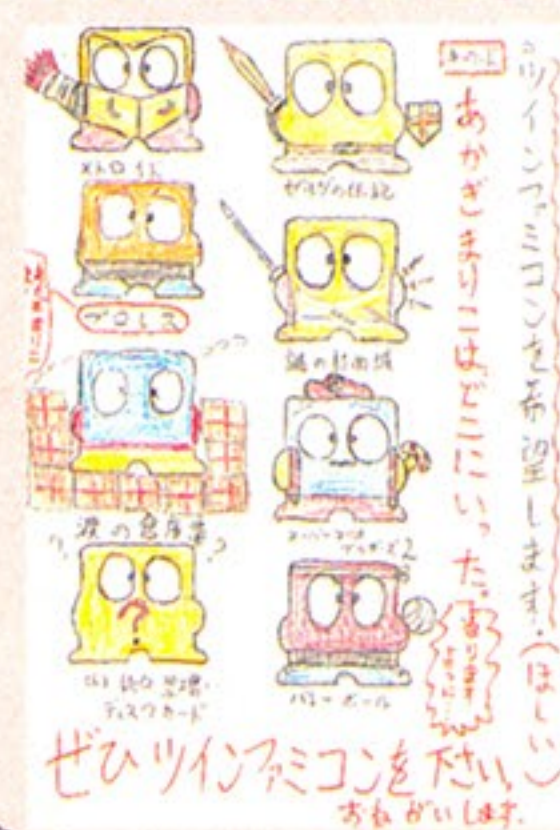 ツインファミコンを希望します。(ほしい)
あかぎまりこはどこにいった。
メトロイド
ゼルダの伝説
プロレス
謎の村雨城
涙の倉庫番
スーパーマリオ
ブラザーズ2
ディスクカード
バレーボール
ぜひツインファミコンを下さい。
おねがいします。